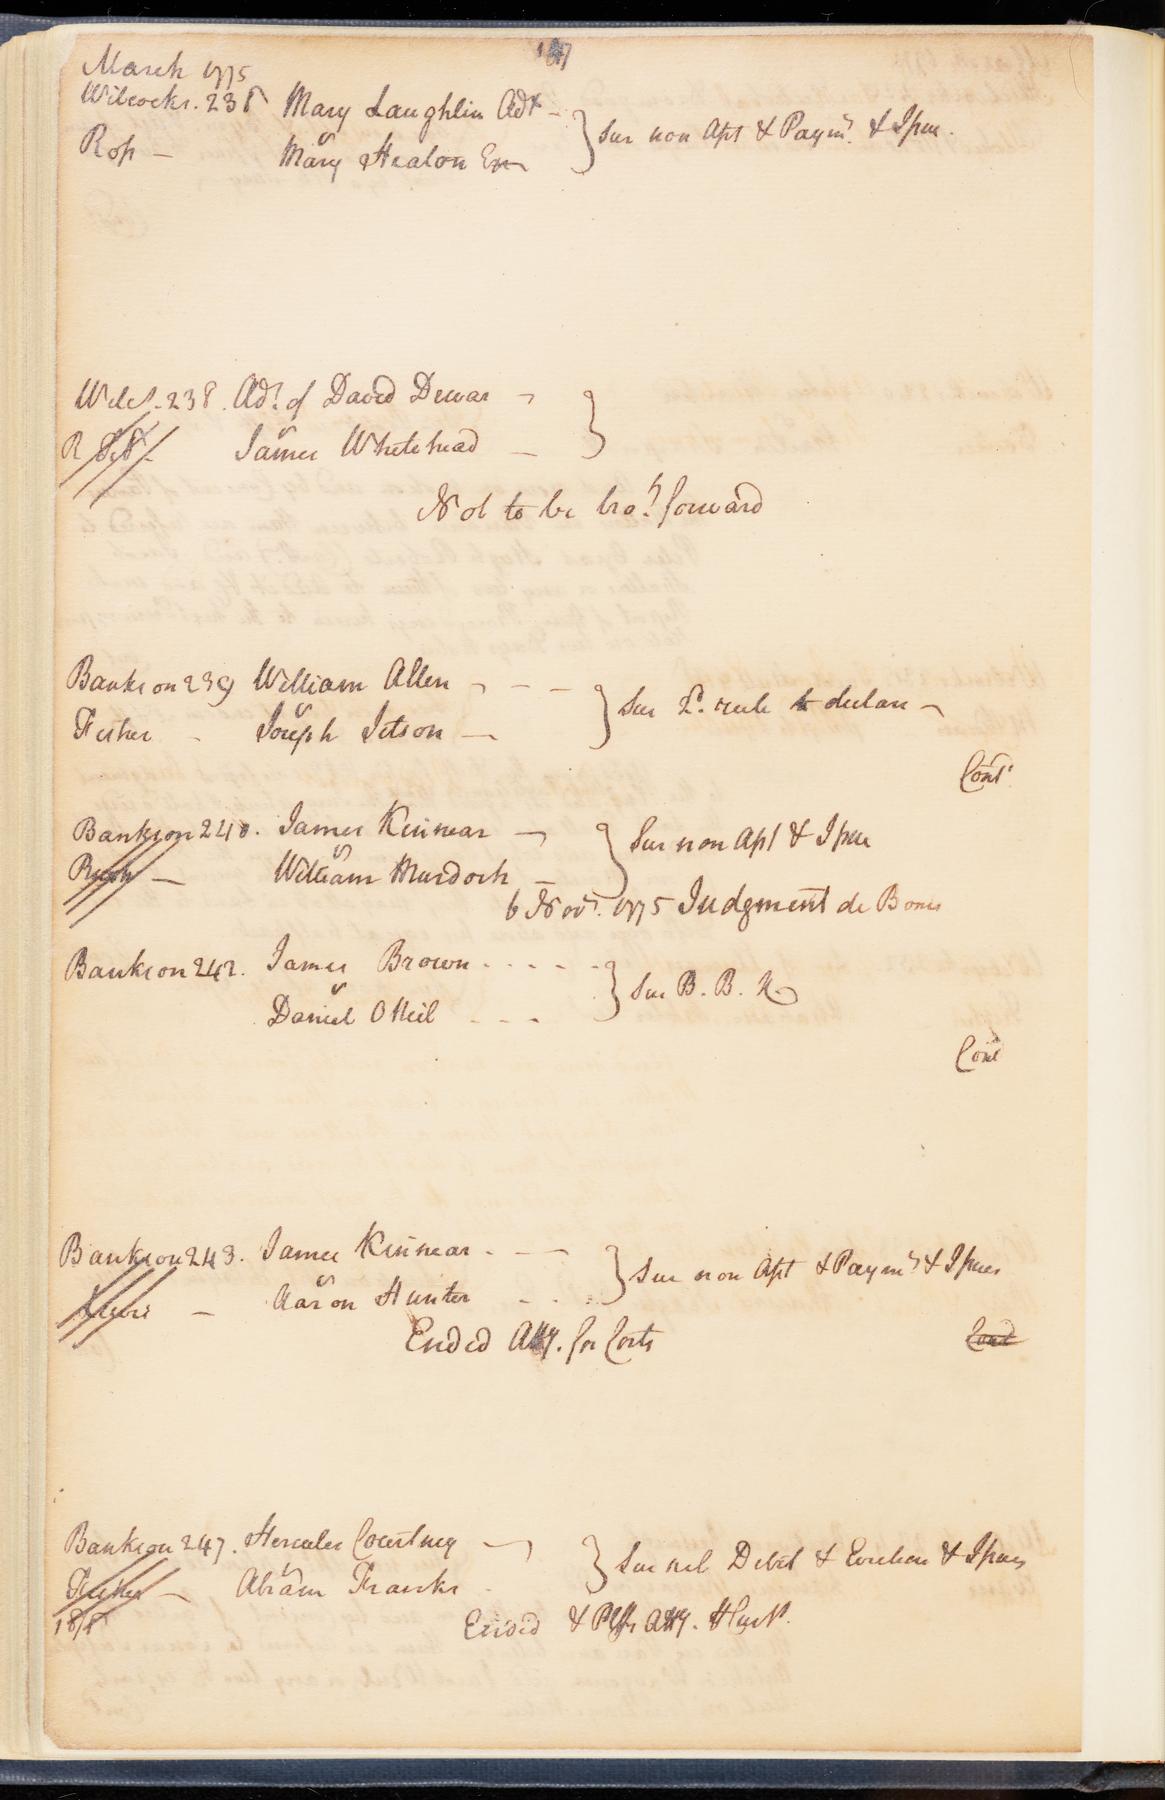 187
March 1775
Wilcocks. 235 Mary Laughlin Adx -
Ross - v Mary Healon Exx } Sur non Apt & Paymt. & Issue.
Wilcs. 238. Adr. of David Dewar
R - v James Whitehead - }
Not to be brot. forward
Bankson 239 William Allen - - - } Sur 2d. rule to declare
Fisher - v Joseph Jetson -
Cont.
Bankson 240. James Kinnear - } Sur non Apt & Issue
Rush - v William Murdoch -
6 Nov. 1775 Judgment de Bonis
Bankson 242. James Brown - - - - - } Sur B. B. R
v Daniel O Neil - - -
Cont
Bankson 243. James Kinnear - - } Sur non Apt & Paymt & Issues
Lewis - v Aaron Hunter - - -
Ended Atty. for Costs
Cont
Bankson 247. Hercules Courtney - } Sur nil Debit & Issues
Fisher - v Abram Franks -
Ended & Plffs Atty.